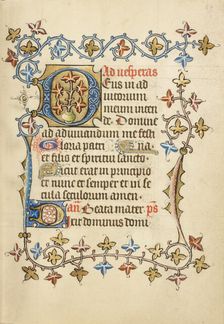 Ad vesperas
Deus in ad
iutorium
meum inten
de. Domine
ad adiuuandum me festi
Gloria patri
et filio et spiritui sancto
Sicut erat in principio
et nunc et semper et in
secula seculorum amen
añ. Beata mater ps
Dixit dominus domi